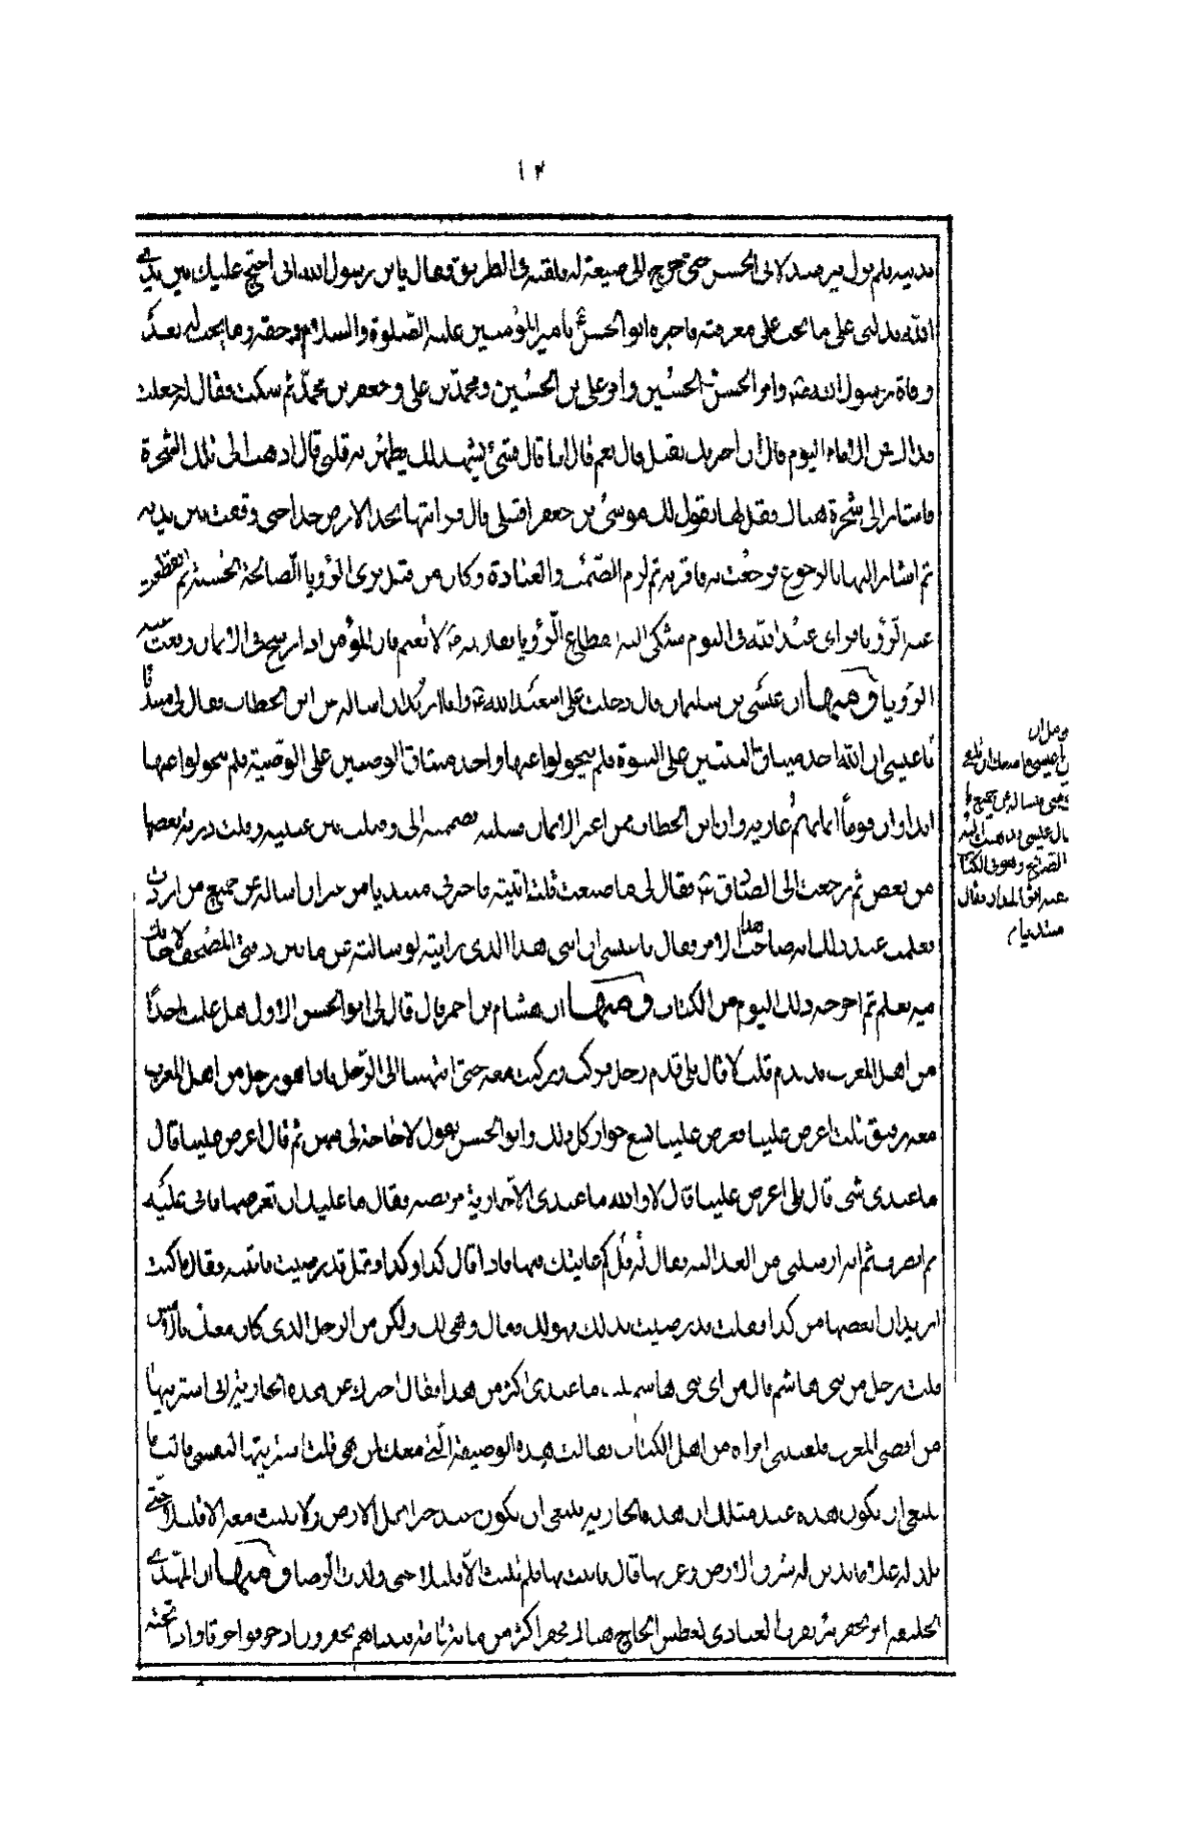 ١٢
بدينه فلم يزل يترصد لابى الحسن حتى خرج الى ضيعة له فلقيه فى الطريق وقال يابن رسول الله انى احتج عليك بين يدى
الله فدلنى على ما يجب على معرفته فاخبره ابو الحسن ع بامير المؤمنين عليه الصلوة والسلام وحقه وما يجب له بعد
وفاة رسول الله ص وامر الحسن والحسين و على بن الحسين ومحمد بن على وجعفر بن محمد ثم سكت فقال له جعلت
فداك من الامام اليوم قال ان اخبرتك تقبل قال نعم قال انا قال فشئ يشهد لك يطمئن به قلبى قال اذهب الى تلك الشجرة
فاشار الى شجرة هناك وقل لها يقول لك موسى بن جعفر اقبلى قال فراتيتها تخد الارض خدا حتى وقفت بين يديه
ثم اشار اليها بالرجوع فرجعت فاقر به ثم لزم الصمت والعبادة وكان من قبل يرى الرؤيا الصالحة الحسنة ثم انقطعت
عنه الرؤيا فراى عبد الله فى النوم فشكى اليه انقطاع الرؤيا فقال لا تغتم فان المؤمن اذا رسخ فى الايمان رفعت عنه
الرؤيا ومنها ان عيسى بن سليمان قال دخلت على ابى عبد الله ع وانا اريد ان اساله عن ابن الخطاب فقال لى مبتدئا
يا عيسى ان الله اخذ ميثاق النبيين على النبوة فلم يتحولوا عنها واخذ ميثاق الوصيين على الوصية فلم يتحولوا عنها
ابدا وان قوما ايمانهم عارية وان ابن الخطاب ممن اعير الايمان فسلبه فضممته الى وقبلت بين عينيه وقلت ذرية بعضها
من بعض ثم رجعت الى الصادق ع فقال لى ما صنعت قلت اتيته فاخبرنى مبتديا من غير ان اساله عن جميع ما اردت
فعلمت عند ذلك انه صاحب هذا الامر فقال يا عيسى ان ابنى هذا الذى رايته لو سالته عن ما بين دفتى المصحف لاجابك
فيه بعلم ثم اخرجه ذلك اليوم من الكتاب ومنها ان هشام بن احمر قال قال لى ابو الحسن الاول هل علمت احدا
من اهل المغرب قد قدم قلت لا قال بلى قدم رجل فركب وركبت معه حتى انتهينا الى الرجل فاذا هو رجل من اهل المغرب
معه رقيق قلت اعرض علينا فعرض علينا تسع جوار كل ذلك وابو الحسن يقول لا حاجة لى فيهن ثم قال اعرض علينا قال
ما عندى شى قال بلى اعرض علينا قال لا والله ما عندى الا جارية مريضة فقال ما عليك ان تعرضها فابى عليه
ثم انصرف ثم انه ارسلنى من الغد اليه فقال لى قل له كم غايتك فيها فاذا قال كذا وكذا فقل قد رضيت فاتيته فقال ما كنت
اريد ان انقصها من كذا فقلت قد رضيت بذلك فهو لك فقال وهى لك ولكن من الرجل الذى كان معك بالامس
قلت رجل من بنى هاشم قال من اى بنى هاشم قلت ما عندى اكثر من هذا فقال اخبرك عن هذه الجارية انى اشتريتها
من اقصى المغرب فلقيتنى امراة من اهل الكتاب فقالت هذه الوصيفة التى معك لمن هى قلت اشتريتها لنفسى قالت ما
ينبغى ان تكون هذه عند مثلك ان هذه الجارية ينبغى ان تكون عند خير اهل الارض ولا تلبث معه الا قليلا حتى
تلد له غلاما يدين له شرق الارض وغربها قال فاتيته بها فلم تلبث الا قليلا حتى ولدت الرضا ومنها ان المهدى
الخليفة امر بحفر بئر بقرب العبادى لعطش الحاج هناك فحفر اكثر من مائة قامة فبيناهم يحفرون اذ خرقوا خرقا واذا تحته
قال عيسى فذهبت اليه